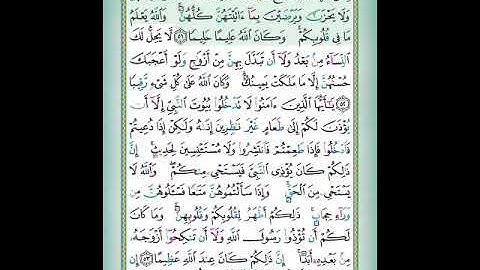 وَلَا يَحْزَنَّ وَيَرْضَيْنَ بِمَا ءَاتَيْتَهُنَّ كُلُّهُنَّ ۚ وَاللَّهُ يَعْلَمُ
مَا فِي قُلُوبِكُمْ ۚ وَكَانَ اللَّهُ عَلِيمًا حَلِيمًا ﴿٥١﴾ لَّا يَحِلُّ لَكَ
النِّسَاءُ مِنۢ بَعْدُ وَلَا أَن تَبَدَّلَ بِهِنَّ مِنْ أَزْوَاجٍ وَلَوْ أَعْجَبَكَ
حُسْنُهُنَّ إِلَّا مَا مَلَكَتْ يَمِينُكَ ۗ وَكَانَ اللَّهُ عَلَىٰ كُلِّ شَيْءٍ رَّقِيبًا
﴿٥٢﴾ يَٰٓأَيُّهَا الَّذِينَ ءَامَنُوا لَا تَدْخُلُوا بُيُوتَ النَّبِيِّ إِلَّا أَن
يُؤْذَنَ لَكُمْ إِلَىٰ طَعَامٍ غَيْرَ نَٰظِرِينَ إِنَىٰهُ وَلَٰكِنْ إِذَا دُعِيتُمْ
فَادْخُلُوا فَإِذَا طَعِمْتُمْ فَانتَشِرُوا وَلَا مُسْتَـْٔنِسِينَ لِحَدِيثٍ ۚ إِنَّ
ذَٰلِكُمْ كَانَ يُؤْذِي النَّبِيَّ فَيَسْتَحْيِۦ مِنكُمْ ۖ وَاللَّهُ لَا
يَسْتَحْيِۦ مِنَ الْحَقِّ ۚ وَإِذَا سَأَلْتُمُوهُنَّ مَتَٰعًا فَسْـَٔلُوهُنَّ مِن
وَرَاءِ حِجَابٍ ۚ ذَٰلِكُمْ أَطْهَرُ لِقُلُوبِكُمْ وَقُلُوبِهِنَّ ۚ وَمَا كَانَ
لَكُمْ أَن تُؤْذُوا رَسُولَ اللَّهِ وَلَا أَن تَنكِحُوا أَزْوَٰجَهُ
مِنۢ بَعْدِهِ أَبَدًا ۚ إِنَّ ذَٰلِكُمْ كَانَ عِندَ اللَّهِ عَظِيمًا ﴿٥٣﴾ إِن